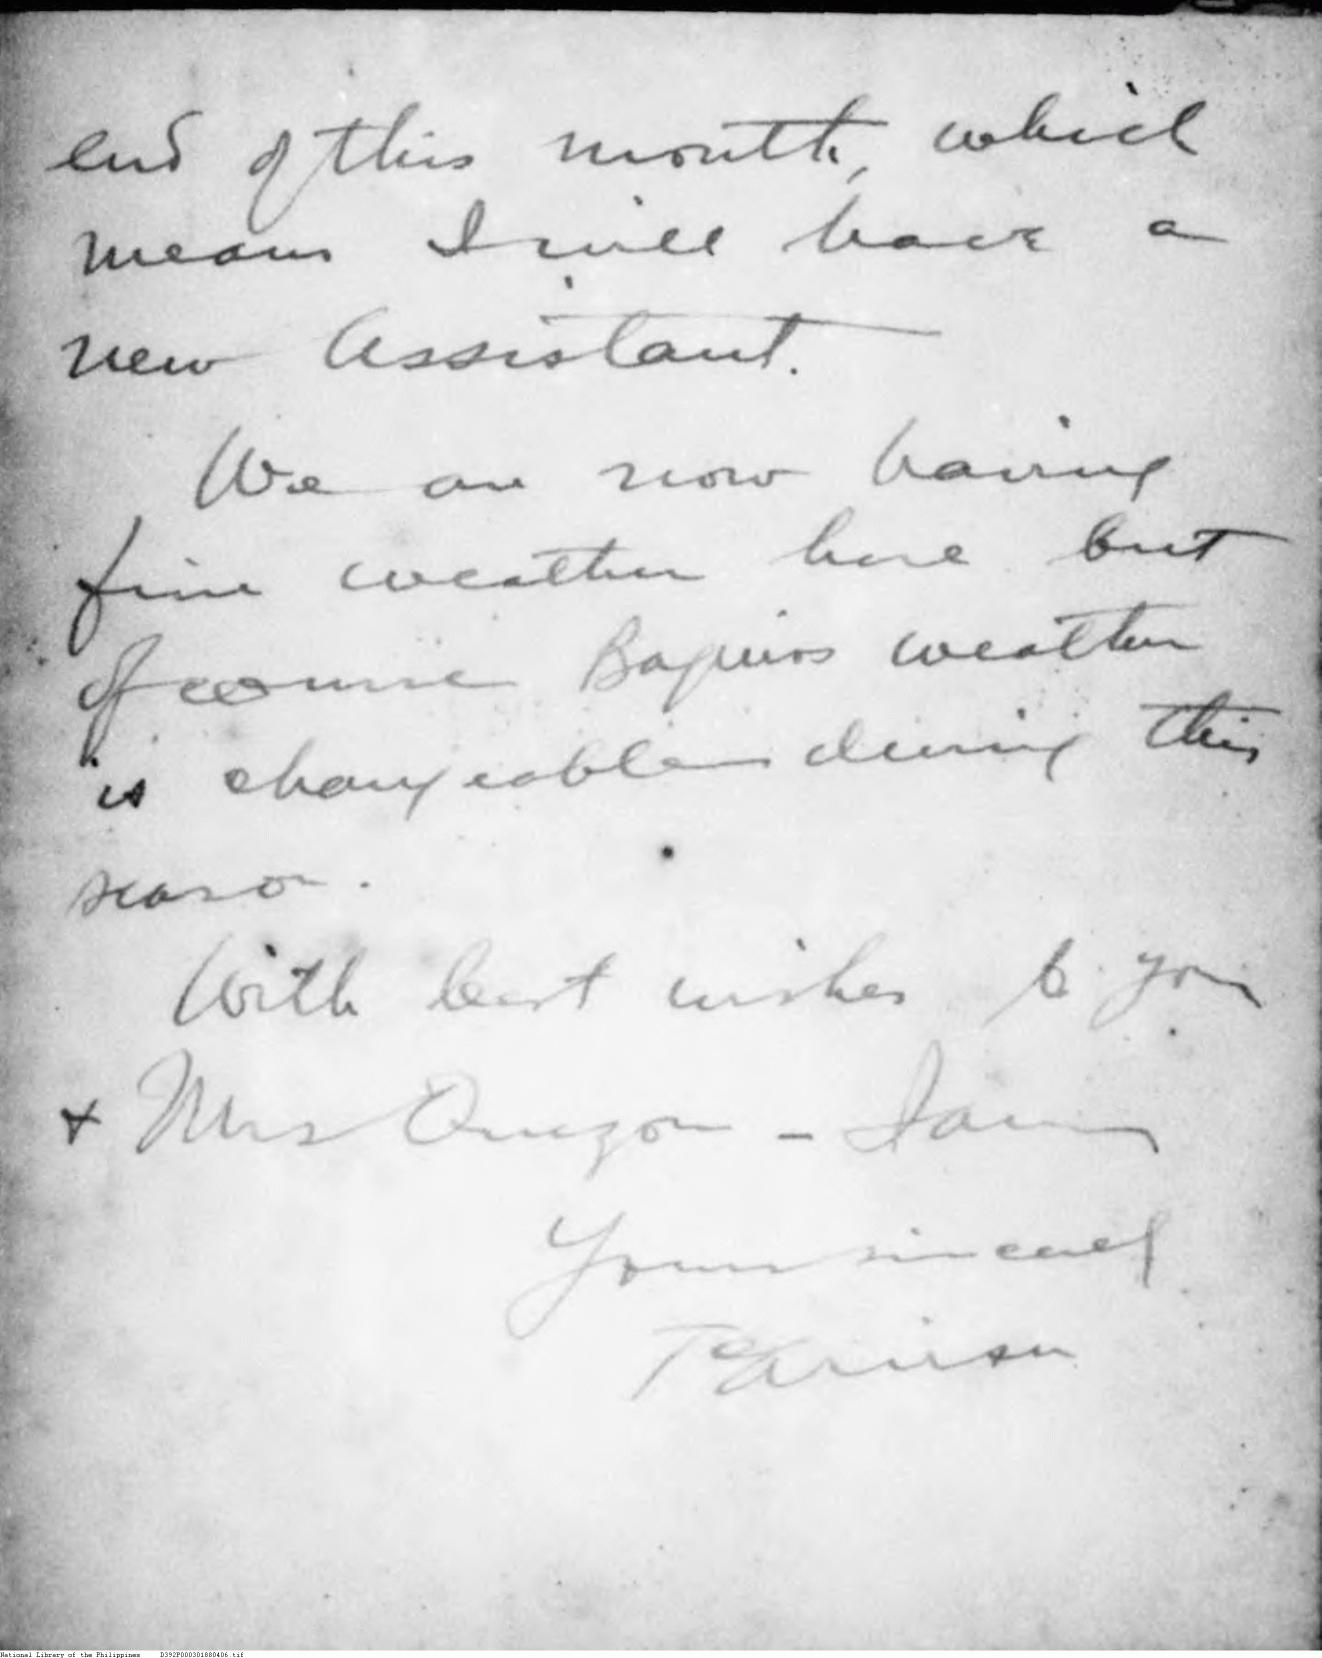 end of this month, which
means I will have a
new Assistant.
We are now having
fine weather here but
of course Baguios weather
is changeable during this
season.
With best wishes to you
+ Mrs Quezon – I am
Yours sincerely
National Library of the Philippines D392P000301880406.tif